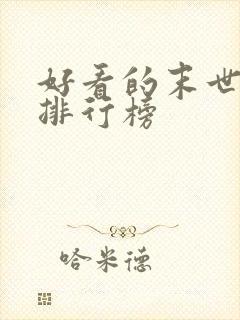 好看的末世
排行榜
哈米德